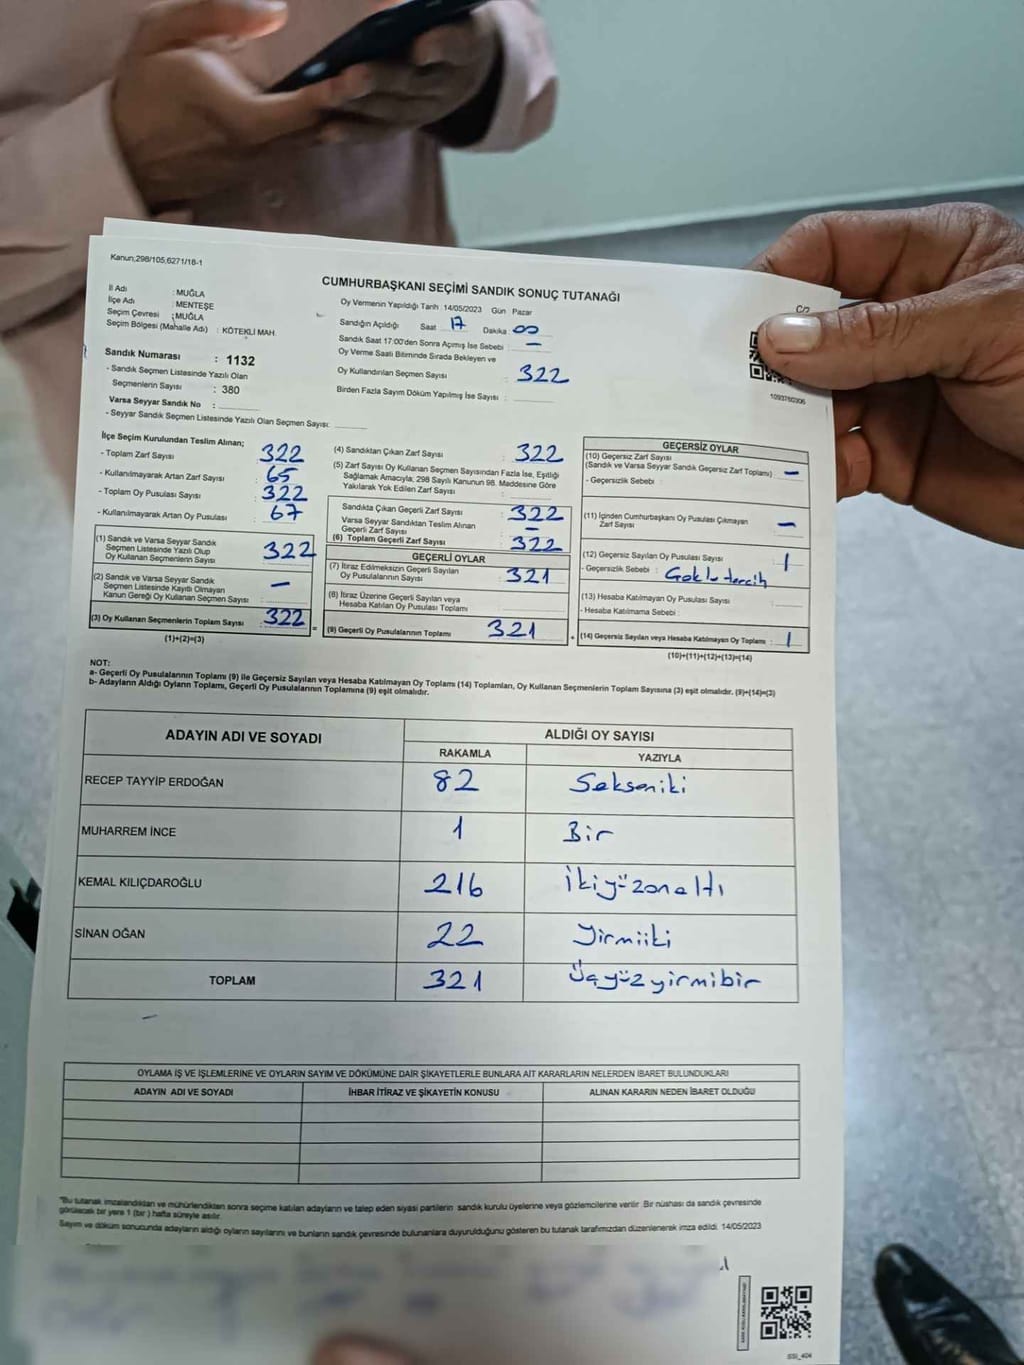 Kanun;298/105;6271/18-1
CUMHURBAŞKANI SEÇİMİ SANDIK SONUÇ TUTANAĞI
İl Adı : MUĞLA
İlçe Adı : MENTEŞE
Seçim Çevresi : MUĞLA
Seçim Bölgesi (Mahalle Adı) : KÖTEKLİ MAH.
Sandık Numarası : 1132
- Sandık Seçmen Listesinde Yazılı Olan
Seçmenlerin Sayısı : 380
Varsa Seyyar Sandık No :
- Seyyar Sandık Seçmen Listesinde Yazılı Olan Seçmen Sayısı:
Oy Vermenin Yapıldığı Tarih 14/05/2023 Gün Pazar
Sandığın Açıldığı Saat 17 Dakika 00
Sandık Saat 17:00'den Sonra Açımış İse Sebebi : –
Oy Verme Saati Bitiminde Sırada Bekleyen ve
Oy Kullandırılan Seçmen Sayısı : 322
Birden Fazla Sayım Döküm Yapılmış İse Sayısı :
1093760306
İlçe Seçim Kurulundan Teslim Alınan;
- Toplam Zarf Sayısı : 322
- Kullanılmayarak Artan Zarf Sayısı : 65
- Toplam Oy Pusulası Sayısı : 322
- Kullanılmayarak Artan Oy Pusulası : 67
(1) Sandık ve Varsa Seyyar Sandık
Seçmen Listesinde Yazılı Olup
Oy Kullanan Seçmenlerin Sayısı : 322
(2) Sandık ve Varsa Seyyar Sandık
Seçmen Listesinde Kayıtlı Olmayan
Kanun Gereği Oy Kullanan Seçmen Sayısı : –
(3) Oy Kullanan Seçmenlerin Toplam Sayısı : 322
(1)+(2)=(3)
(4) Sandıktan Çıkan Zarf Sayısı : 322
(5) Zarf Sayısı Oy Kullanan Seçmen Sayısından Fazla İse, Eşitliği
Sağlamak Amacıyla; 298 Sayılı Kanunun 98. Maddesine Göre
Yakılarak Yok Edilen Zarf Sayısı :
Sandıkta Çıkan Geçerli Zarf Sayısı : 322
Varsa Seyyar Sandıktan Teslim Alınan
Geçerli Zarf Sayısı : –
(6) Toplam Geçerli Zarf Sayısı : 322
GEÇERLİ OYLAR
(7) İtiraz Edilmeksizin Geçerli Sayılan
Oy Pusulalarının Sayısı : 321
(8) İtiraz Üzerine Geçerli Sayılan veya
Hesaba Katılan Oy Pusulası Toplamı :
(9) Geçerli Oy Pusulalarının Toplamı 321
GEÇERSİZ OYLAR
(10) Geçersiz Zarf Sayısı
(Sandık ve Varsa Seyyar Sandık Geçersiz Zarf Toplamı) : –
- Geçersizlik Sebebi :
(11) İçinden Cumhurbaşkanı Oy Pusulası Çıkmayan
Zarf Sayısı : –
(12) Geçersiz Sayılan Oy Pusulası Sayısı : 1
- Geçersizlik Sebebi : Çoklu tercih
(13) Hesaba Katılmayan Oy Pusulası Sayısı :
- Hesaba Katılmama Sebebi :
(14) Geçersiz Sayılan veya Hesaba Katılmayan Oy Toplamı : 1
(10)+(11)+(12)+(13)=(14)
NOT:
a- Geçerli Oy Pusulalarının Toplamı (9) ile Geçersiz Sayılan veya Hesaba Katılmayan Oy Toplamı (14) Toplamları, Oy Kullanan Seçmenlerin Toplam Sayısına (3) eşit olmalıdır. (9)+(14)=(3)
b- Adayların Aldığı Oyların Toplamı, Geçerli Oy Pusulalarının Toplamına (9) eşit olmalıdır.
ADAYIN ADI VE SOYADI ALDIĞI OY SAYISI
RAKAMLA YAZIYLA
RECEP TAYYİP ERDOĞAN 82 Sekseniki
MUHARREM İNCE 1 Bir
KEMAL KILIÇDAROĞLU 216 İkiyüzonaltı
SİNAN OĞAN 22 Yirmiiki
TOPLAM 321 Üçyüzyirmibir
OYLAMA İŞ VE İŞLEMLERİNE VE OYLARIN SAYIM VE DÖKÜMÜNE DAİR ŞİKAYETLERLE BUNLARA AİT KARARLARIN NELERDEN İBARET BULUNDUKLARI
ADAYIN ADI VE SOYADI İHBAR İTİRAZ VE ŞİKAYETİN KONUSU ALINAN KARARIN NEDEN İBARET OLDUĞU
*Bu tutanak imzalandıktan ve mühürlendikten sonra seçime katılan adayların ve talep eden siyasi partilerin sandık kurulu üyelerine veya gözlemcilerine verilir. Bir nüshası da sandık çevresinde
görülecek bir yere 1 (bir) hafta süreyle asılır.
Sayım ve döküm sonucunda adayların aldığı oyların sayılarını ve bunların sandık çevresinde bulunanlara duyurulduğunu gösteren bu tutanak tarafımızdan düzenlenerek imza edildi. 14/05/2023
SSI_404